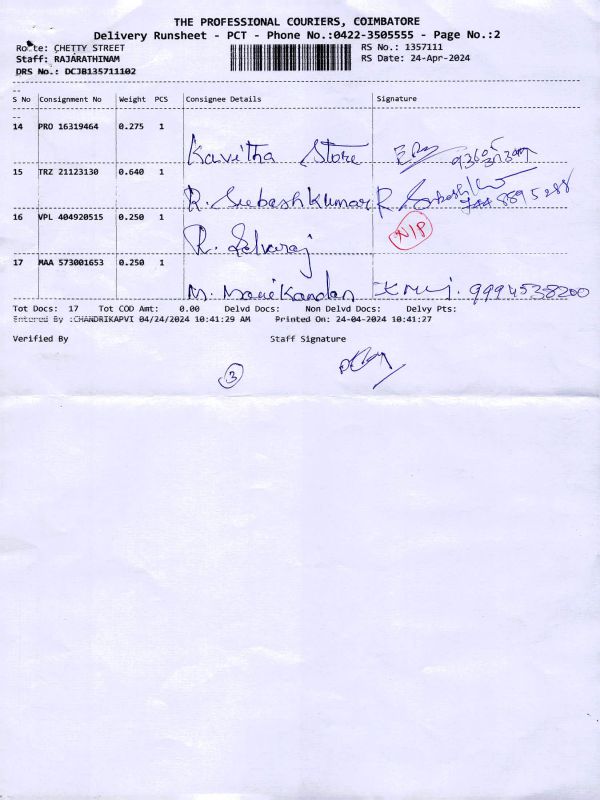 THE PROFESSIONAL COURIERS, COIMBATORE
Delivery Runsheet - PCT - Phone No.:0422-3505555 - Page No.:2
Route: CHETTY STREET RS No.: 1357111
Staff: RAJARATHINAM RS Date: 24-Apr-2024
DRS No.: DCJB135711102
S No Consignment No Weight PCS Consignee Details Signature
14 PRO 16319464 0.275 1
Kavitha Store
15 TRZ 21123130 0.640 1
R. Subashkumar R
16 VPL 404920515 0.250 1 N/P
R. Selvaraj
17 MAA 573001653 0.250 1
M. Manikandan 9994538200
Tot Docs: 17 Tot COD Amt: 0.00 Delvd Docs: Non Delvd Docs: Delvy Pts:
Entered By :CHANDRIKAPVI 04/24/2024 10:41:29 AM Printed On: 24-04-2024 10:41:27
Verified By Staff Signature
3